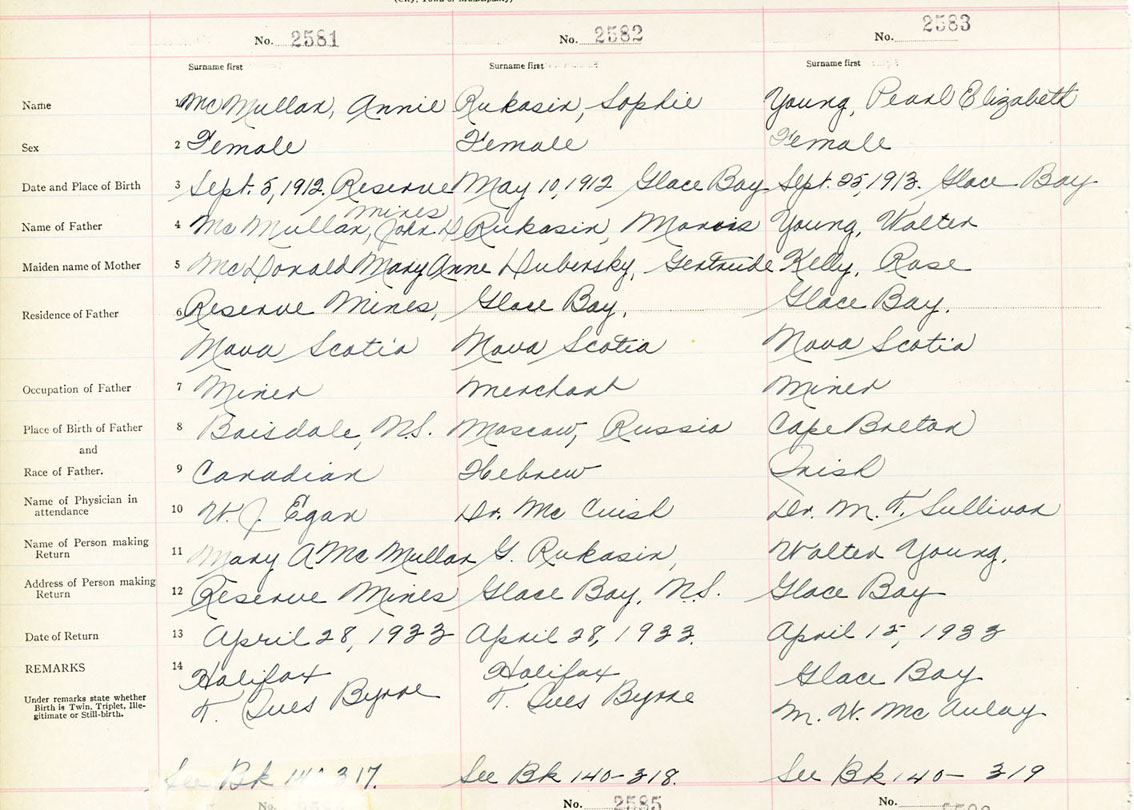 (City, Town or Municipality)
No. 2581 No. 2582 No. 2583
Surname first Surname first Surname first
Name 1 McMullan, Annie Rukasin, Sophie Young, Pearl Elizabeth
Sex 2 Female Female Female
Date and Place of Birth 3 Sept. 5, 1912. Reserve Mines May 10, 1912 Glace Bay Sept. 25, 1913. Glace Bay
Name of Father 4 McMullan, John D Rukasin, Morris Young, Walter
Maiden name of Mother 5 McDonald Mary Anne Dubersky, Gertrude Kelly, Rose
Residence of Father 6 Reserve Mines, Glace Bay, Glace Bay,
Nova Scotia Nova Scotia Nova Scotia
Occupation of Father 7 Miner Merchant Miner
Place of Birth of Father 8 Boisdale, N.S. Moscow, Russia Cape Breton
and
Race of Father. 9 Canadian Hebrew Irish
Name of Physician in
attendance 10 W. J. Egan Dr. McCuish Dr. M. T. Sullivan
Name of Person making
Return 11 Mary A McMullan G. Rukasin, Walter Young,
Address of Person making
Return 12 Reserve Mines Glace Bay, N.S. Glace Bay
Date of Return 13 April 28, 1933 April 28, 1933. April 15, 1933
REMARKS 14 Halifax Halifax Glace Bay
Under remarks state whether
Birth is Twin, Triplet, Ille-
gitimate or Still-birth.
T. Ives Byrne T. Ives Byrne M. W. McAulay
See Bk 140 317. See Bk 140-318. See Bk 140- 319
No. No. 2585 No.